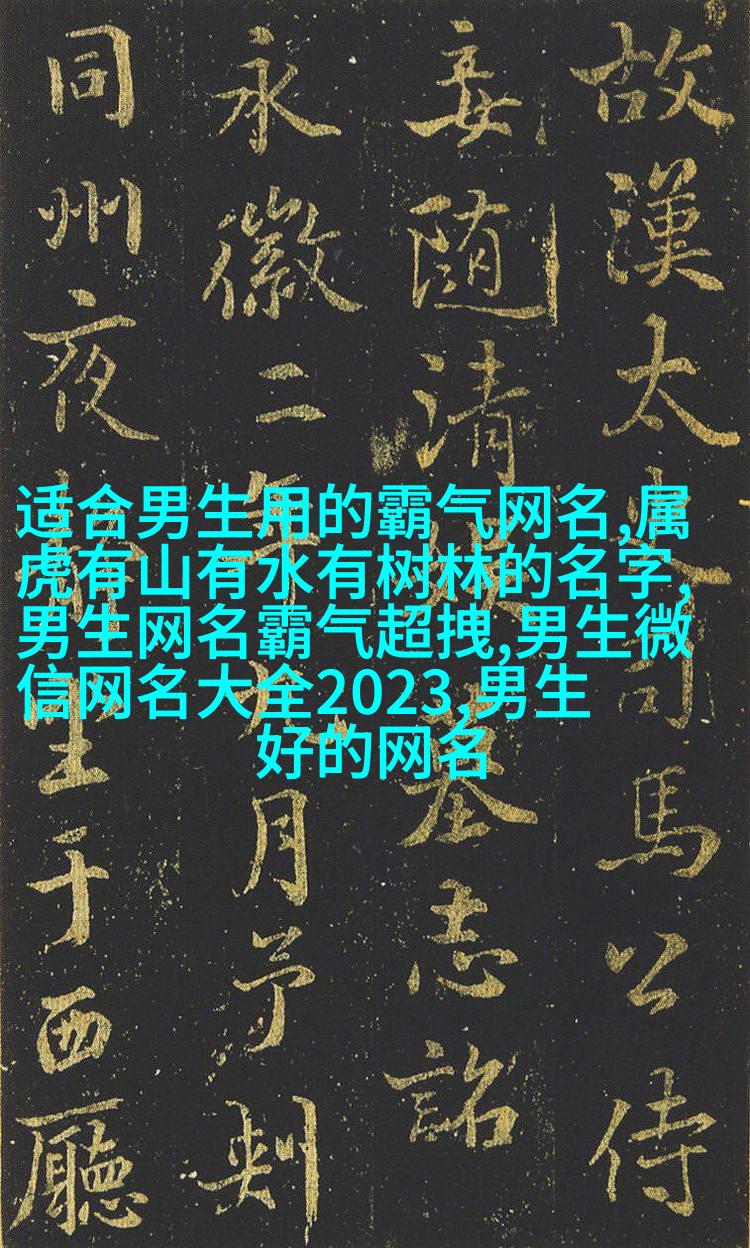 适合男生用的霸气网名,属
虎有山有水有树林的名字,
男生网名霸气超拽,男生微
信网名大全2023,男生
好的网名
故漢太史司馬公侍
妾随清娱墓志銘
永徽二年九月予判
同州夜静坐于西廳